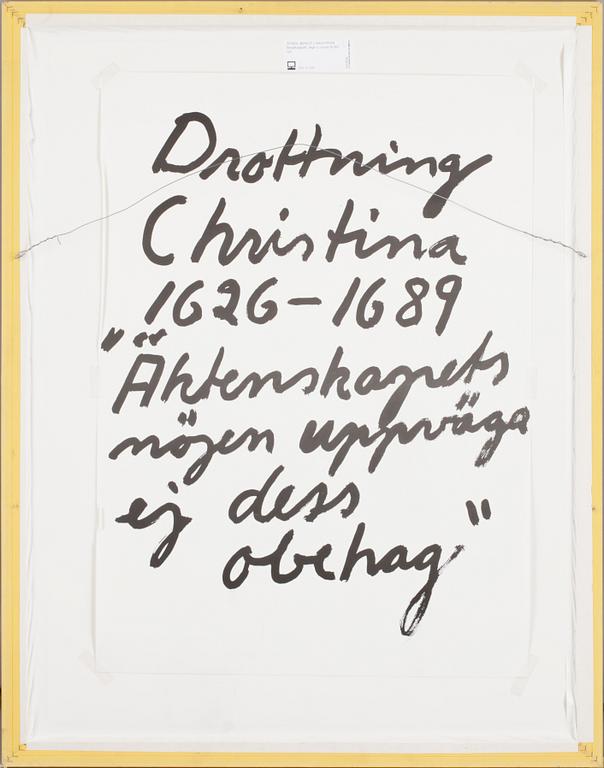 Drottning
Christina
1626-1689
"Äktenskapets
nöjen uppväga
ej dess
obehag"